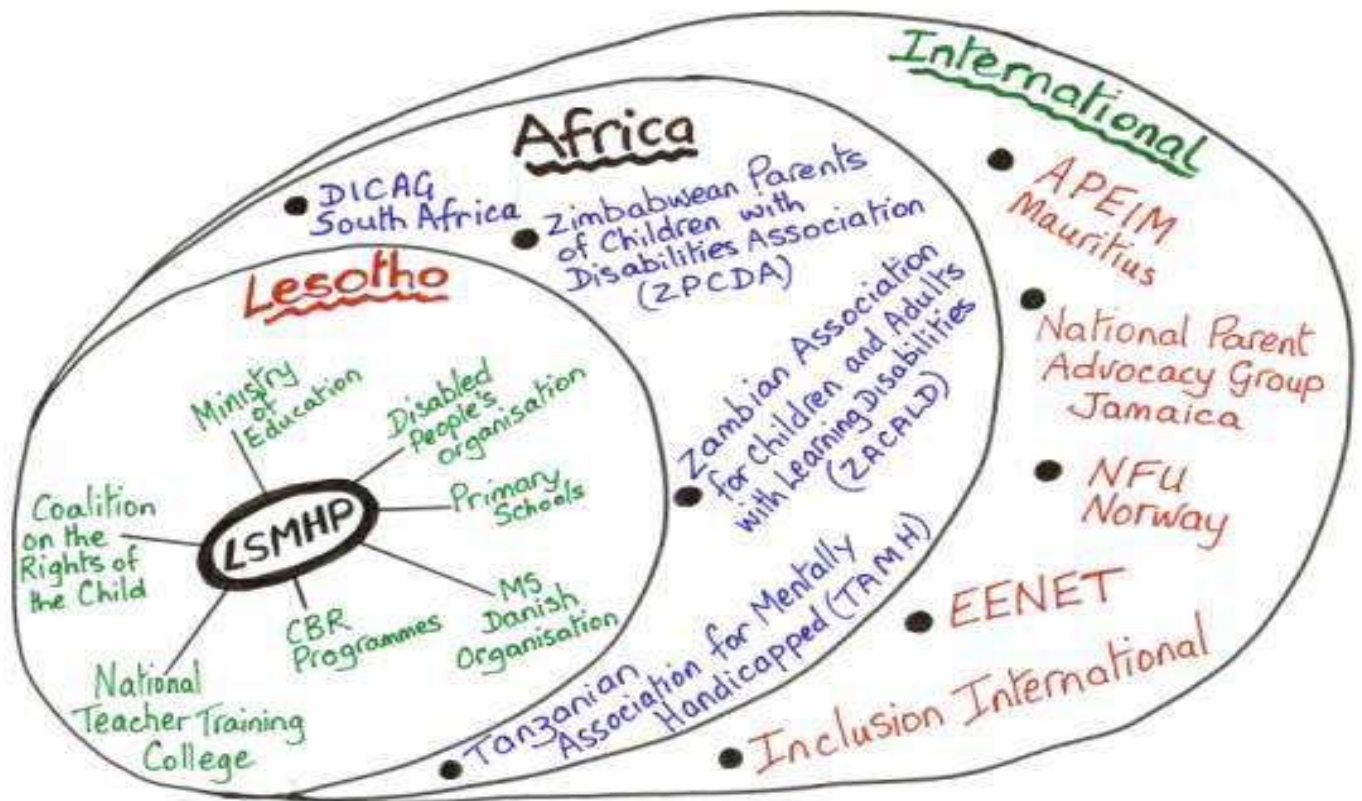 International
Africa
Lesotho
LSMHP
Ministry
of
Education
Disabled
People's
organisation
Primary
Schools
MS
Danish
Organisation
CBR
Programmes
National
Teacher Training
College
Coalition
on the
Rights of
the Child
DICAG
South Africa
Zimbabwean Parents
of Children with
Disabilities Association
(ZPCDA)
Zambian Association
for Children and Adults
with Learning Disabilities
(ZACALD)
Tanzanian
Association for Mentally
Handicapped (TAMH)
APEIM
Mauritius
National Parent
Advocacy Group
Jamaica
NFU
Norway
EENET
Inclusion International